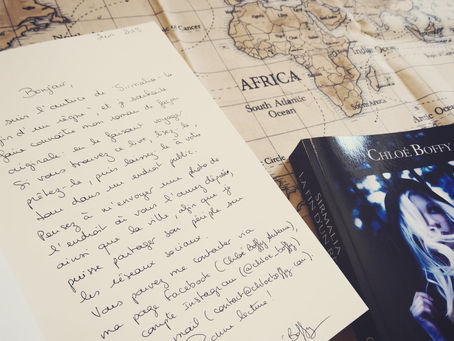 Juin 2018
Bonjour,
Je suis l'auteure de Sirmalia : la
fin d'un règne et je souhaite
faire connaître mon roman de façon
originale : en le faisant voyager.
Si vous trouvez ce livre, lisez-le,
prêtez-le, puis laissez-le à votre
tour dans un endroit public.
Pensez à m'envoyer une photo de
l'endroit où vous l'avez déposé,
ainsi que la ville, afin que je
puisse partager son périple sur
les réseaux sociaux.
Vous pouvez me contacter via
ma page Facebook (Chloé Boffy Auteure),
compte Instagram (@chloe_boffy)
mail (contact@chloeboffy.com).
Bonne lecture !
Boffy
AFRICA
South Atlantic
Ocean
Indian Ocean
CHLOÉ BOFFY
SIRMALIA
LA FIN D'UN